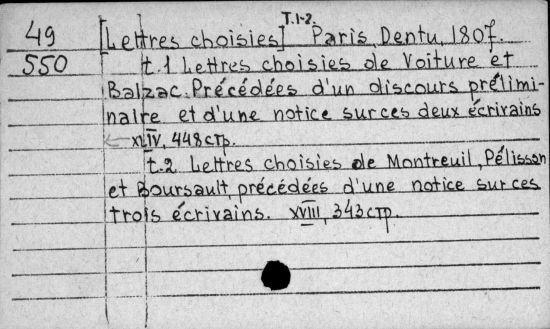 49 [Lettres choisies] T.1-2. Paris, Dentu, 1807.
550 t.1 Lettres choisies de Voiture et
Balzac. Précédées d'un discours prélimi-
naire et d'une notice sur ces deux écrivains
XLIV, 448 стр.
t.2 Lettres choisies de Montreuil, Pélisson
et Boursault, précédées d'une notice sur ces
trois écrivains. XVIII, 343 стр.